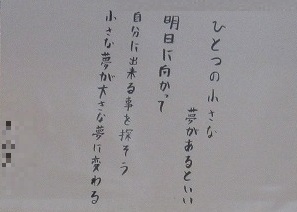 ひとつの小さな
夢があるといい
明日に向かって
自分に出来る事を探そう
小さな夢が大きな夢に変わる